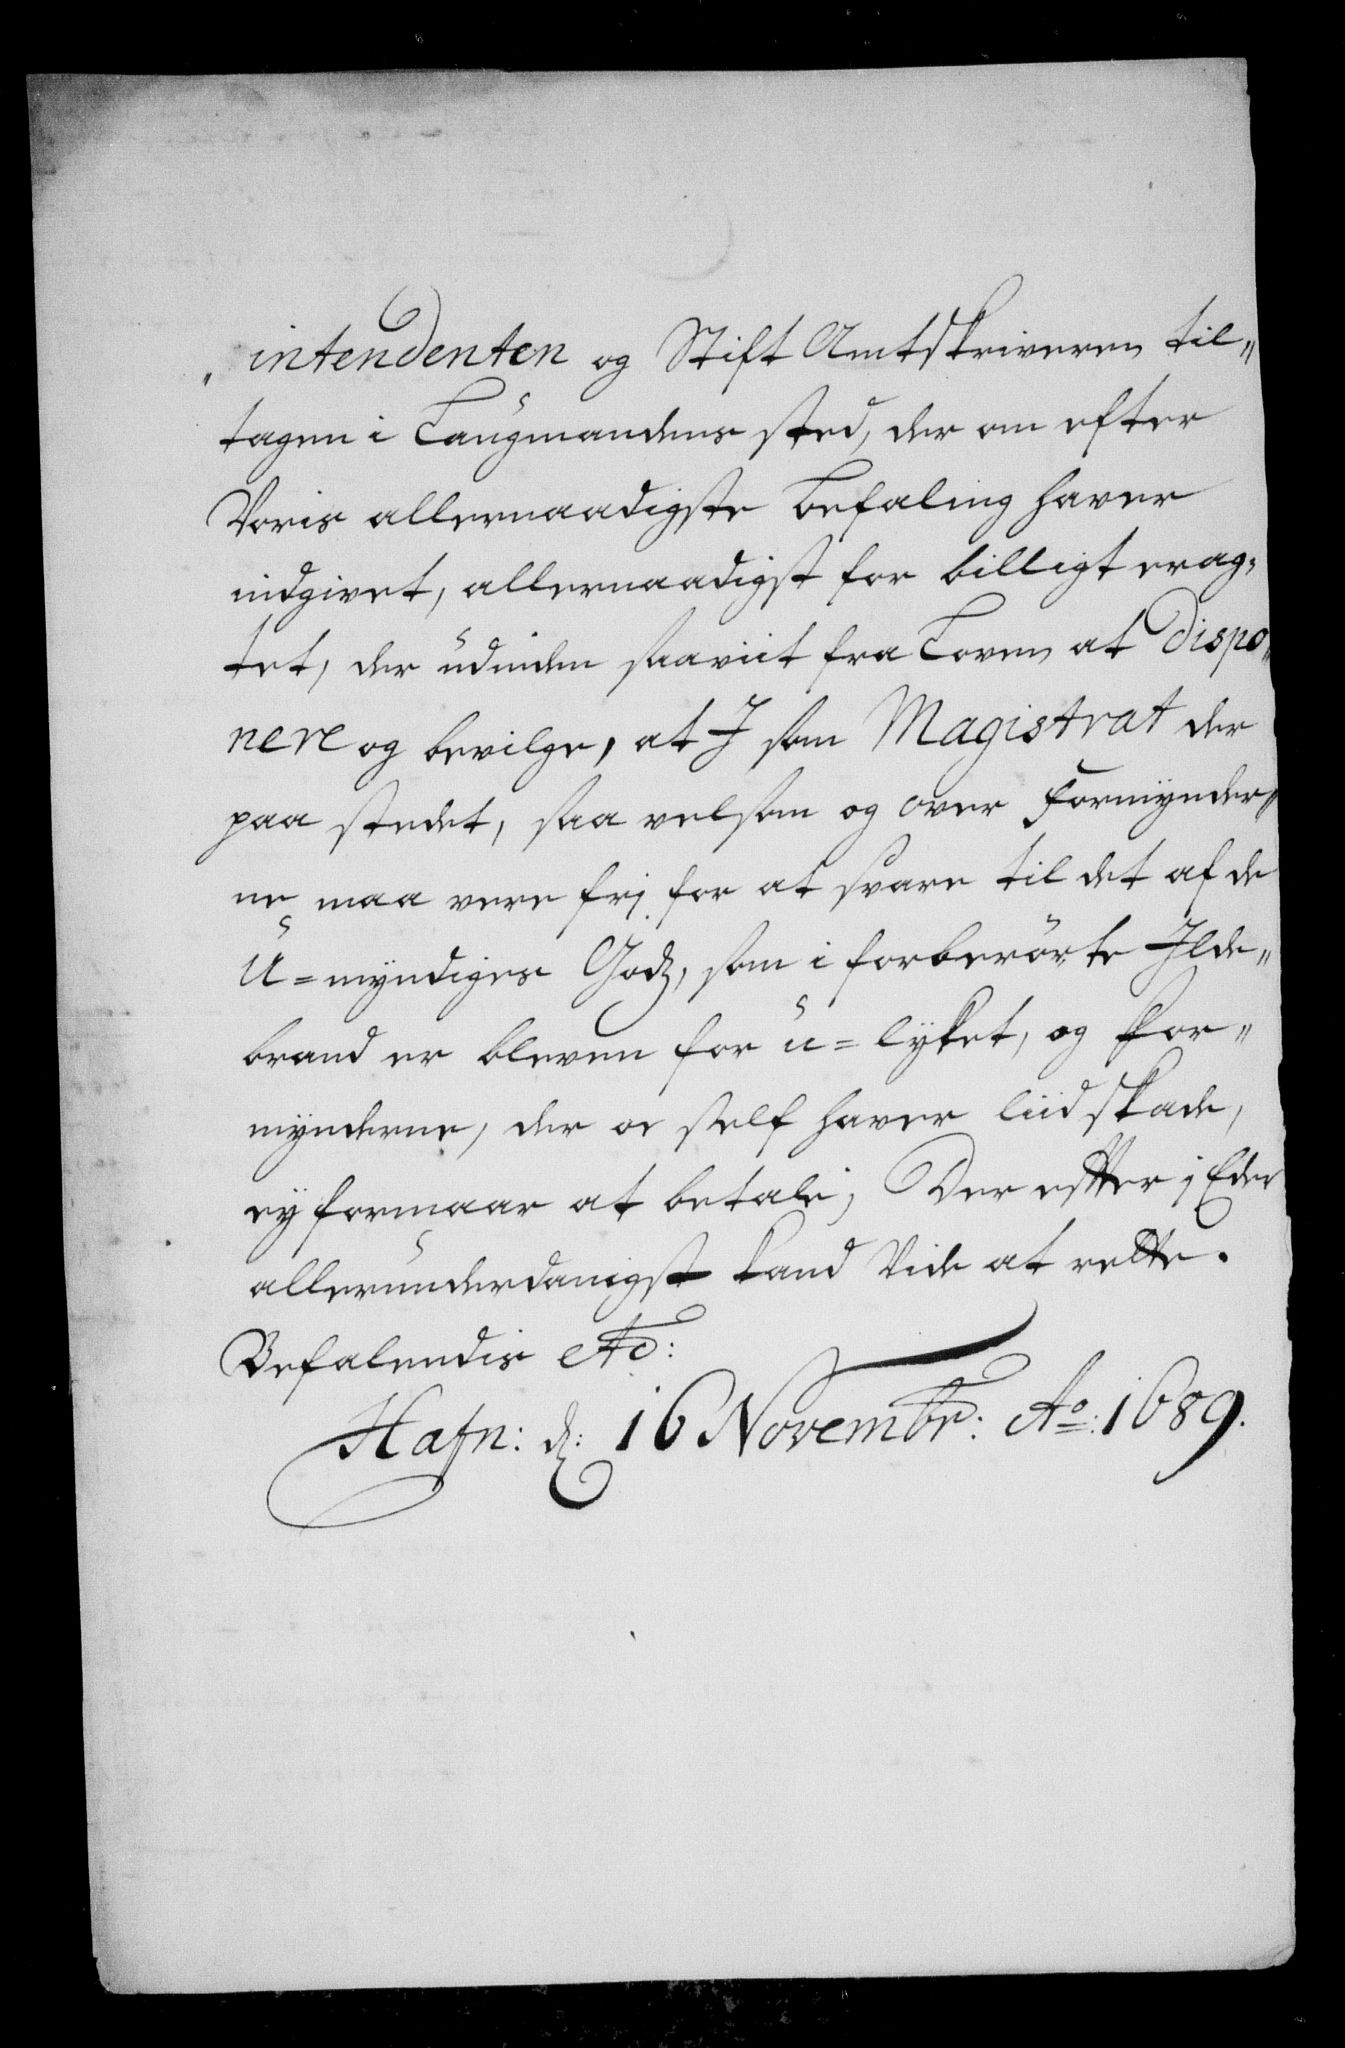 „intendenten og Stift Amtskriveren til„
tagen i Laugmandens sted, der om efter
Voris allernaadigste befaling haver
indgivet, allernaadigst for billigt erag„
tet, der udinden saaviit fra Loven at Dispo„
nere og bevilge, at I som Magistrat der
paa stedet, saa velsom og over Formynder„
ne maa vere frj for at svare til det af de
U=myndiges Godz, som i forberørte Ilde„
brand er bleven for u=lyket, og For„
mynderne, der oc self haver liid skade,
ey formaar at betale; Der effter j Eder
allerunderdanigst kand Vide at rette.
Befalendis etc:
Hafn: d: 16 Novembr: Ao: 1689.